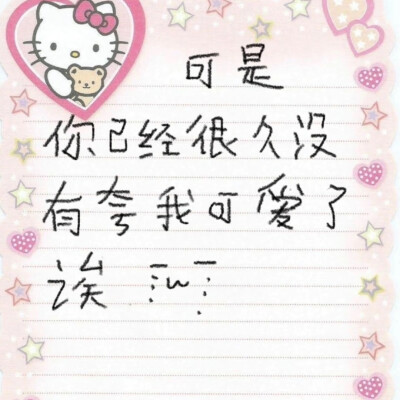 可是
你已经很久没
有夸我可愛了
诶 ï w ï